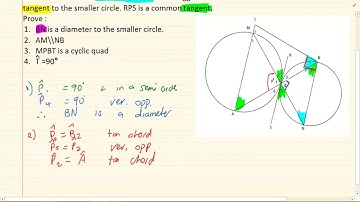 tangent to the smaller circle. RPS is a common tangent.
Prove :
1. BN is a diameter to the smaller circle.
2. AM\\NB
3. MPBT is a cyclic quad
4. T̂ =90°
1) P̂₁ = 90° ∠ in a semi circle
P̂₄ = 90° ver. opp.
∴ BN is a diameter
2) = B̂₂ tan chord
P̂₅ = P̂₂ ver. opp
P̂₂ = Â tan chord